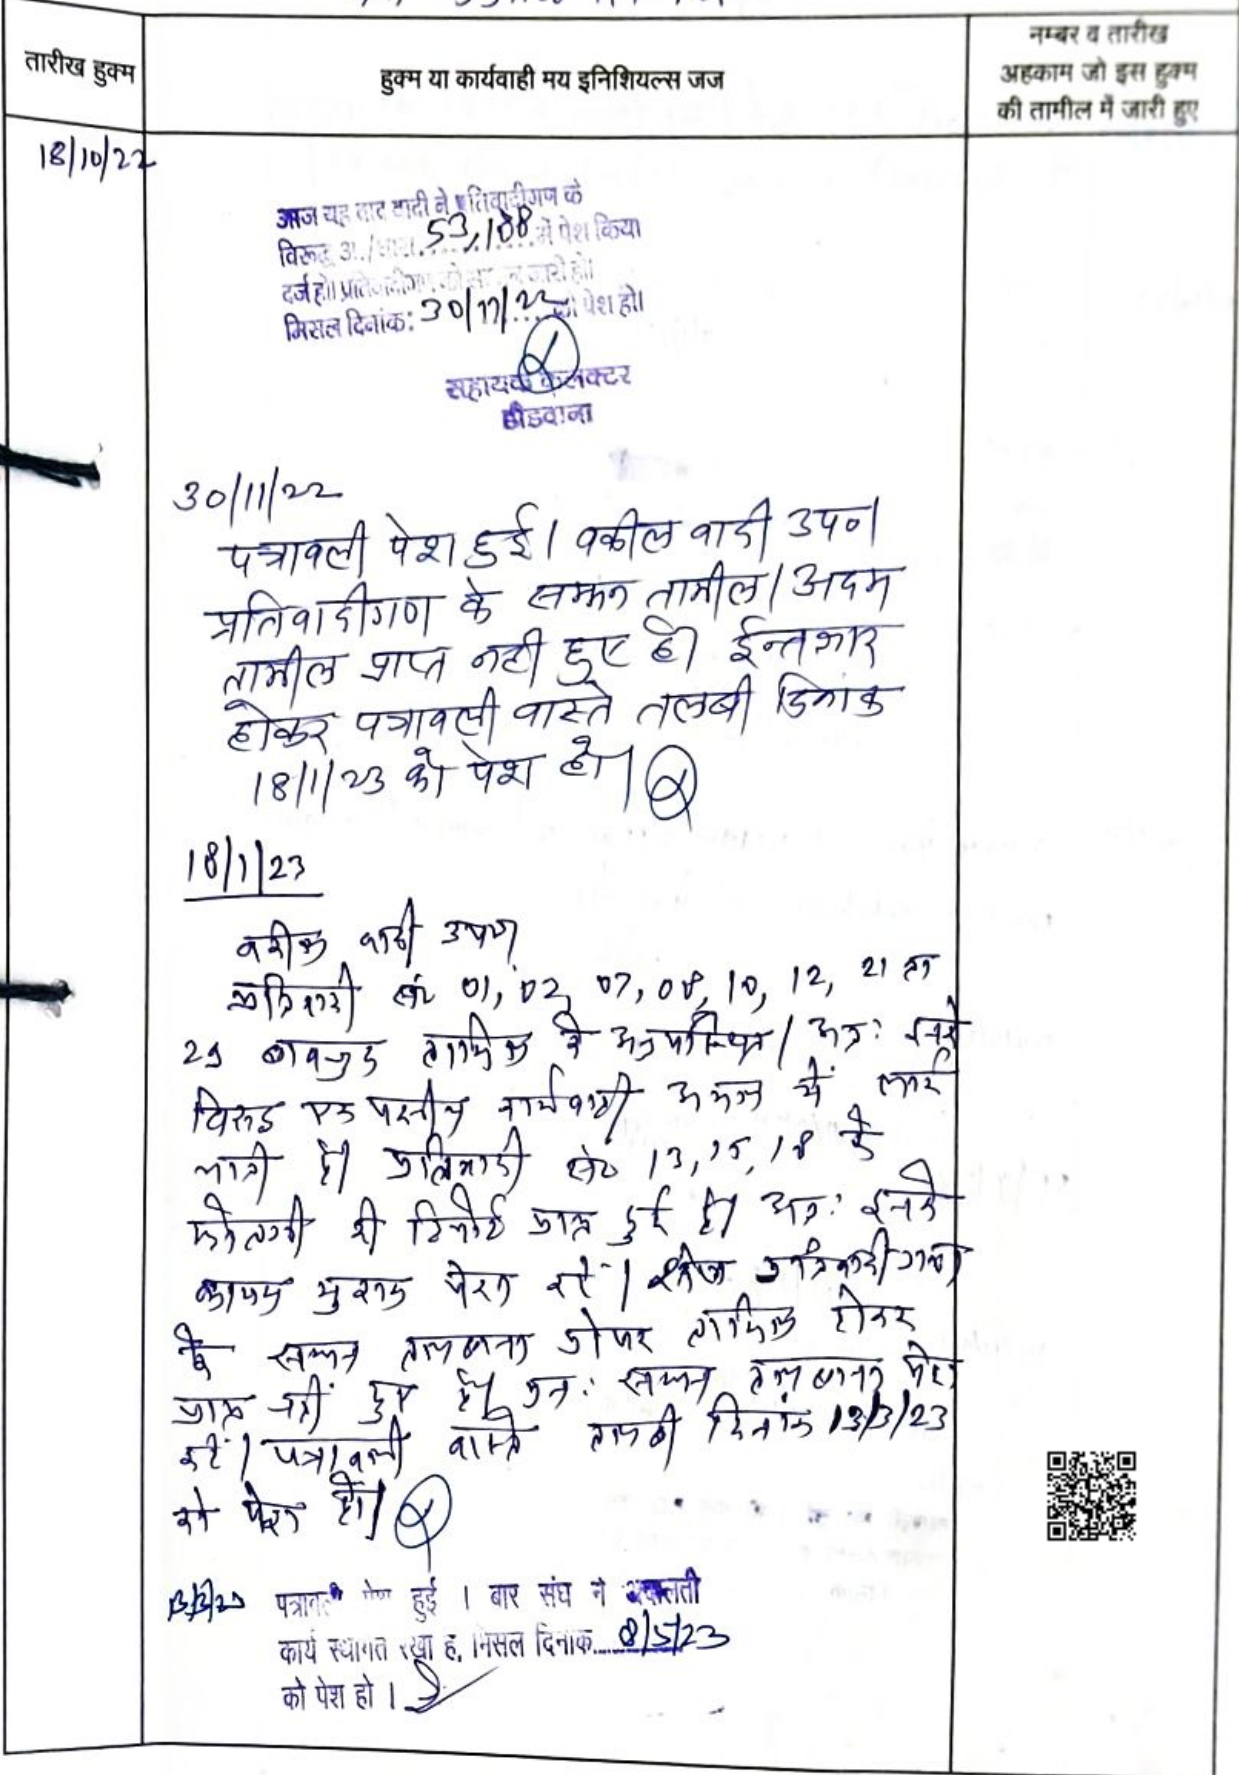 तारीख हुक्म
हुक्म या कार्यवाही मय इनिशियल्स जज
नम्बर व तारीख
अहकाम जो इस हुक्म
की तामील में जारी हुए
18/10/22
आज यह वाद वादी ने प्रतिवादीगण के
विरूद्ध अ./धारा. 53,188 में पेश किया
दर्ज हो। प्रतिवादीगण को जारी हो।
मिसल दिनांक: 30/11/22 को पेश हो।
सहायक कलक्टर
डीडवाना
30/11/22
पत्रावली पेश हुई। वकील वादी उप०।
प्रतिवादीगण के सम्मन तामील/अदम
तामील प्राप्त नही हुए है। ईन्तजार
होकर पत्रावली वास्ते तलबी दिनांक
18/1/23 को पेश हो।
18/1/23
वकील वादी उप०
प्रतिवादी सं० 01, 02, 07, 08, 10, 12, 21 व
बावजुद तामिल के अनुपस्थित। अतः इनके
विरुद्ध एक पक्षीय कार्यवाही अमल में लाई
जाती है। प्रतिवादी सं० 13, 15, 18 के
फौतगी की रिपोर्ट प्राप्त हुई है। अतः इनके
कायम मुकाम पेश करें। शेष प्रतिवादीगण
के सम्मन तलबाना होकर
प्राप्त नहीं हुए है। पुनः सम्मन तलबाना पेश
करें। पत्रावली वास्ते तलबी दिनांक 13/3/23
को पेश हो।
13/3/23 पत्रावली पेश हुई । बार संघ ने अदालती
कार्य स्थगित रखा है, मिसल दिनांक 8/5/23
को पेश हो ।